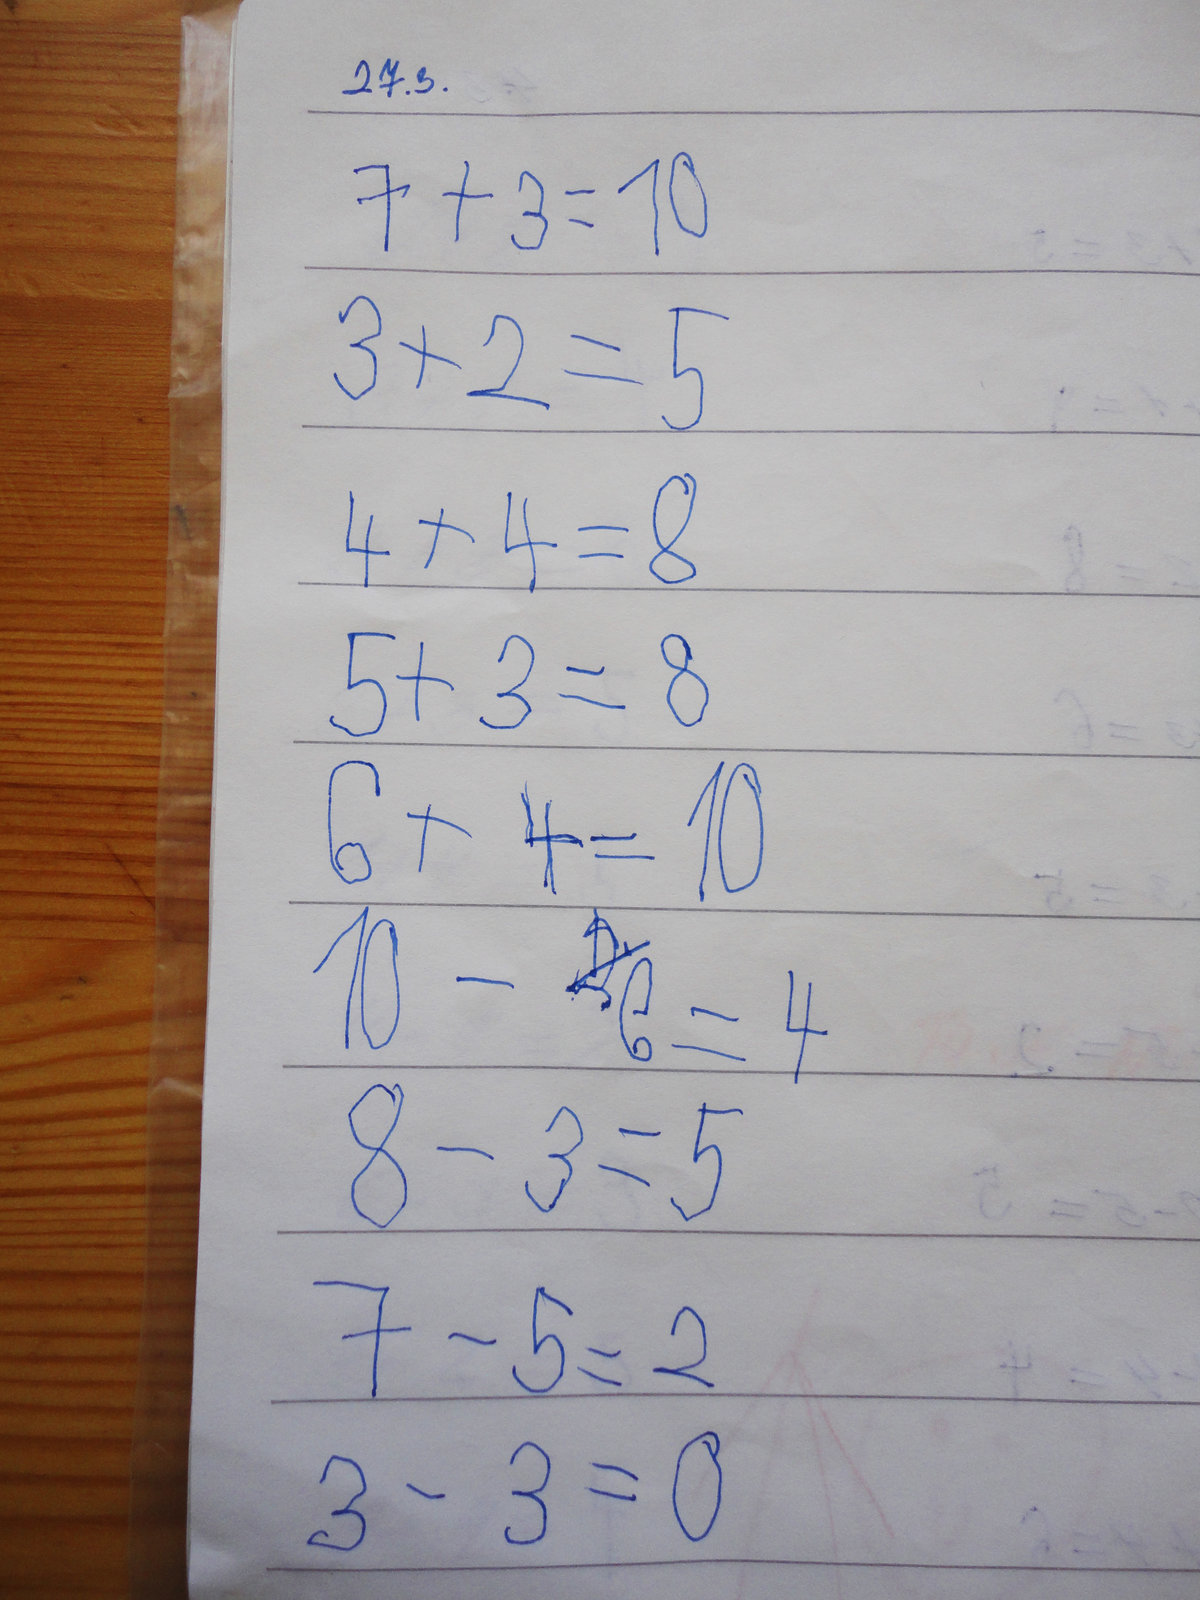 27.3.
7 + 3 = 10
3 + 2 = 5
4 + 4 = 8
5 + 3 = 8
6 + 4 = 10
10 - 6 = 4
8 - 3 = 5
7 - 5 = 2
3 - 3 = 0